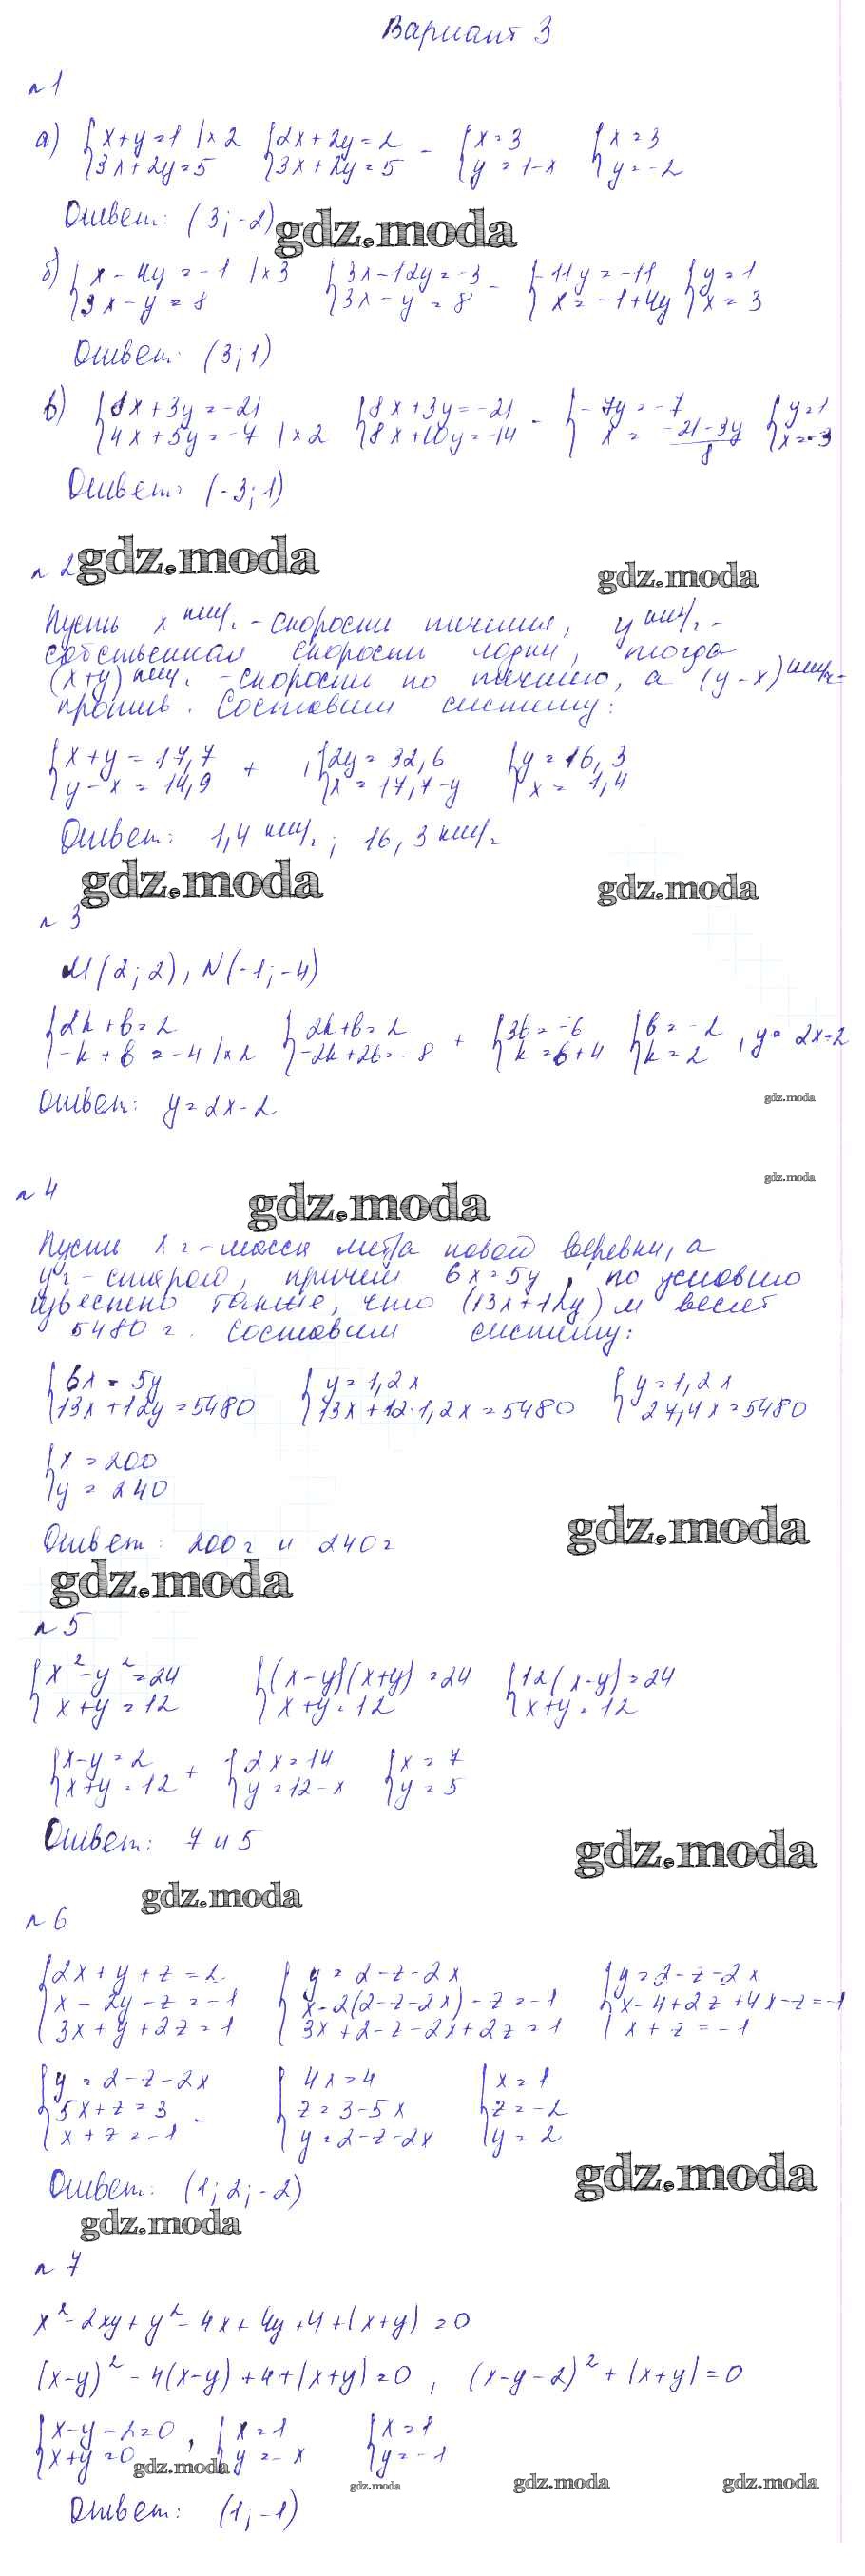 Вариант 3
№1
а) {x+y=1 |×2 {2x+2y=2 - {x=3 {x=3
{3x+2y=5 {3x+2y=5 {y=1-x {y=-2
Ответ: (3;-2)
gdz.moda
б) {x-4y=-1 |×3 {3x-12y=-3 - {-11y=-11 {y=1
{3x-y=8 {3x-y=8 {x=-1+4y {x=3
Ответ: (3;1)
в) {8x+3y=-21 {8x+3y=-21 - {-7y=-7 {y=1
{4x+5y=-7 |×2 {8x+10y=-14 {x=(-21-3y)/8 {x=-3
Ответ: (-3;1)
№2
gdz.moda
gdz.moda
Пусть x км/ч - скорость течения, y км/ч -
собственная скорость лодки, тогда
(x+y) км/ч - скорость по течению, а (y-x) км/ч -
против. Составим систему:
{x+y=17,7 + {2y=32,6 {y=16,3
{y-x=14,9 {x=17,7-y {x=1,4
Ответ: 1,4 км/ч; 16,3 км/ч
gdz.moda
gdz.moda
№3
M(2;2), N(-1;-4)
{2k+b=2 {2k+b=2 + {3b=-6 {b=-2 , y=2x-2
{-k+b=-4 |×2 {-2k+2b=-8 {k=b+4 {k=2
Ответ: y=2x-2
gdz.moda
gdz.moda
№4
gdz.moda
Пусть x г - масса метра новой веревки, а
y г - старой, причем 6x=5y, по условию
известно также, что (13x+12y) м весят
5480 г. Составим систему:
{6x=5y {y=1,2x {y=1,2x
{13x+12y=5480 {13x+12·1,2x=5480 {27,4x=5480
{x=200
{y=240
Ответ: 200г и 240г
gdz.moda
gdz.moda
№5
{x²-y²=24 {(x-y)(x+y)=24 {12(x-y)=24
{x+y=12 {x+y=12 {x+y=12
{x-y=2 + {2x=14 {x=7
{x+y=12 {y=12-x {y=5
Ответ: 7 и 5
gdz.moda
gdz.moda
№6
{2x+y+z=2 {y=2-z-2x {y=2-z-2x
{x-2y-z=-1 {x-2(2-z-2x)-z=-1 {x-4+2z+4x-z=-1
{3x+y+2z=1 {3x+2-z-2x+2z=1 {x+z=-1
{y=2-z-2x {4x=4 {x=1
{5x+z=3 - {z=3-5x {z=-2
{x+z=-1 {y=2-z-2x {y=2
Ответ: (1;2;-2)
gdz.moda
gdz.moda
№7
x²-2xy+y²-4x+4y+4+|x+y|=0
(x-y)²-4(x-y)+4+|x+y|=0, (x-y-2)²+|x+y|=0
{x-y-2=0 , {x=1 {x=1
{x+y=0 {y=-x {y=-1
gdz.moda
gdz.moda
gdz.moda
gdz.moda
Ответ: (1;-1)